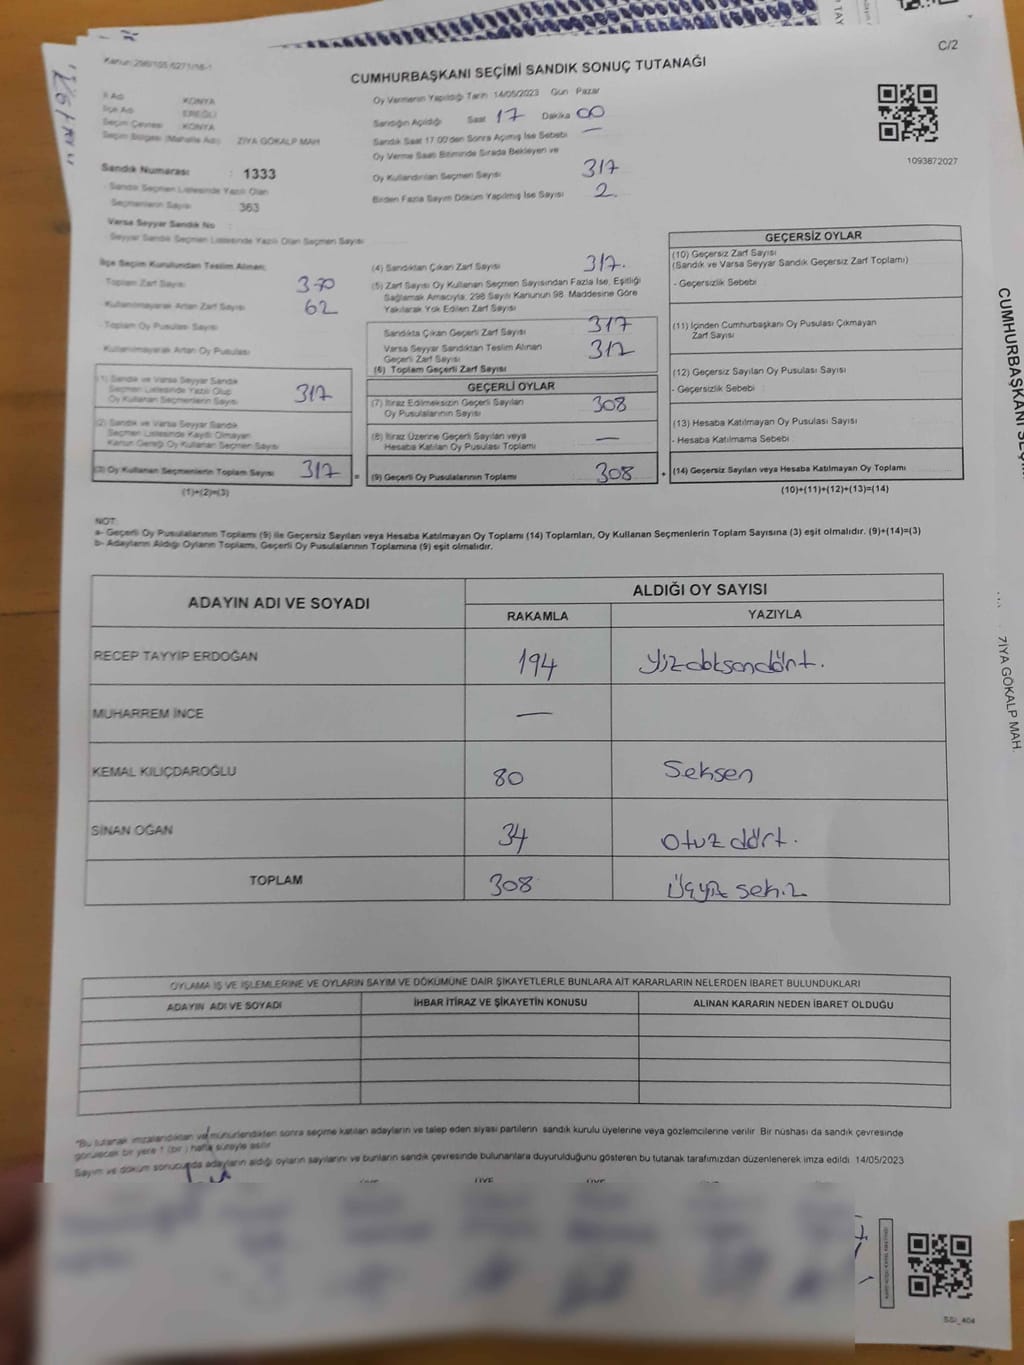 Kanun:298/105,6271/16-1
C/2
CUMHURBAŞKANI SEÇİMİ SANDIK SONUÇ TUTANAĞI
İl Adı : KONYA
İlçe Adı : EREĞLİ
Seçim Çevresi : KONYA
Seçim Bölgesi (Mahalle Adı) : ZİYA GÖKALP MAH
Sandık Numarası : 1333
- Sandık Seçmen Listesinde Yazılı Olan
Seçmenlerin Sayısı 363
Varsa Seyyar Sandık No :
- Seyyar Sandık Seçmen Listesinde Yazılı Olan Seçmen Sayısı
Oy Vermenin Yapıldığı Tarih 14/05/2023 Gün Pazar
Sandığın Açıldığı Saat 17 Dakika 00
Sandık Saat 17.00'den Sonra Açılmış İse Sebebi —
Oy Verme Saati Bitiminde Sırada Bekleyen ve
Oy Kullandırılan Seçmen Sayısı 317
Birden Fazla Sayım Döküm Yapılmış İse Sayısı 2.
1093872027
İlçe Seçim Kurulundan Teslim Alınan;
Toplam Zarf Sayısı 370
- Kullanılmayarak Artan Zarf Sayısı 62
- Toplam Oy Pusulası Sayısı
- Kullanılmayarak Artan Oy Pusulası
(1) Sandık ve Varsa Seyyar Sandık
Seçmen Listesinde Yazılı Olup
Oy Kullanan Seçmenlerin Sayısı 317
(2) Sandık ve Varsa Seyyar Sandık
Seçmen Listesinde Kayıtlı Olmayan
Kanun Gereği Oy Kullanan Seçmen Sayısı
(3) Oy Kullanan Seçmenlerin Toplam Sayısı 317 =
(1)+(2)=(3)
(4) Sandıktan Çıkan Zarf Sayısı 317.
(5) Zarf Sayısı Oy Kullanan Seçmen Sayısından Fazla İse, Eşitliği
Sağlamak Amacıyla, 298 Sayılı Kanunun 98. Maddesine Göre
Yakılarak Yok Edilen Zarf Sayısı
Sandıkta Çıkan Geçerli Zarf Sayısı 317
Varsa Seyyar Sandıktan Teslim Alınan
Geçerli Zarf Sayısı 317
(6) Toplam Geçerli Zarf Sayısı
GEÇERLİ OYLAR
(7) İtiraz Edilmeksizin Geçerli Sayılan
Oy Pusulalarının Sayısı 308
(8) İtiraz Üzerine Geçerli Sayılan veya
Hesaba Katılan Oy Pusulası Toplamı —
(9) Geçerli Oy Pusulalarının Toplamı 308 +
GEÇERSİZ OYLAR
(10) Geçersiz Zarf Sayısı
(Sandık ve Varsa Seyyar Sandık Geçersiz Zarf Toplamı)
- Geçersizlik Sebebi
(11) İçinden Cumhurbaşkanı Oy Pusulası Çıkmayan
Zarf Sayısı
(12) Geçersiz Sayılan Oy Pusulası Sayısı
- Geçersizlik Sebebi :
(13) Hesaba Katılmayan Oy Pusulası Sayısı
- Hesaba Katılmama Sebebi
(14) Geçersiz Sayılan veya Hesaba Katılmayan Oy Toplamı
(10)+(11)+(12)+(13)=(14)
NOT:
a- Geçerli Oy Pusulalarının Toplamı (9) ile Geçersiz Sayılan veya Hesaba Katılmayan Oy Toplamı (14) Toplamları, Oy Kullanan Seçmenlerin Toplam Sayısına (3) eşit olmalıdır. (9)+(14)=(3)
b- Adayların Aldığı Oyların Toplamı, Geçerli Oy Pusulalarının Toplamına (9) eşit olmalıdır.
ADAYIN ADI VE SOYADI ALDIĞI OY SAYISI
RAKAMLA YAZIYLA
RECEP TAYYİP ERDOĞAN 194 Yüzdoksandört.
MUHARREM İNCE —
KEMAL KILIÇDAROĞLU 80 Seksen
SİNAN OĞAN 34 Otuz dört.
TOPLAM 308 Üçyüz sekiz
OYLAMA İŞ VE İŞLEMLERİNE VE OYLARIN SAYIM VE DÖKÜMÜNE DAİR ŞİKAYETLERLE BUNLARA AİT KARARLARIN NELERDEN İBARET BULUNDUKLARI
ADAYIN ADI VE SOYADI İHBAR İTİRAZ VE ŞİKAYETİN KONUSU ALINAN KARARIN NEDEN İBARET OLDUĞU
*Bu tutanak imzalandıktan ve mühürlendikten sonra seçime katılan adayların ve talep eden siyasi partilerin sandık kurulu üyelerine veya gözlemcilerine verilir. Bir nüshası da sandık çevresinde
görülecek bir yere 1 (bir) hafta süreyle asılır.
Sayım ve döküm sonucunda adayların aldığı oyların sayılarını ve bunların sandık çevresinde bulunanlara duyurulduğunu gösteren bu tutanak tarafımızdan düzenlenerek imza edildi. 14/05/2023
SSI_404
ZİYA GÖKALP MAH.